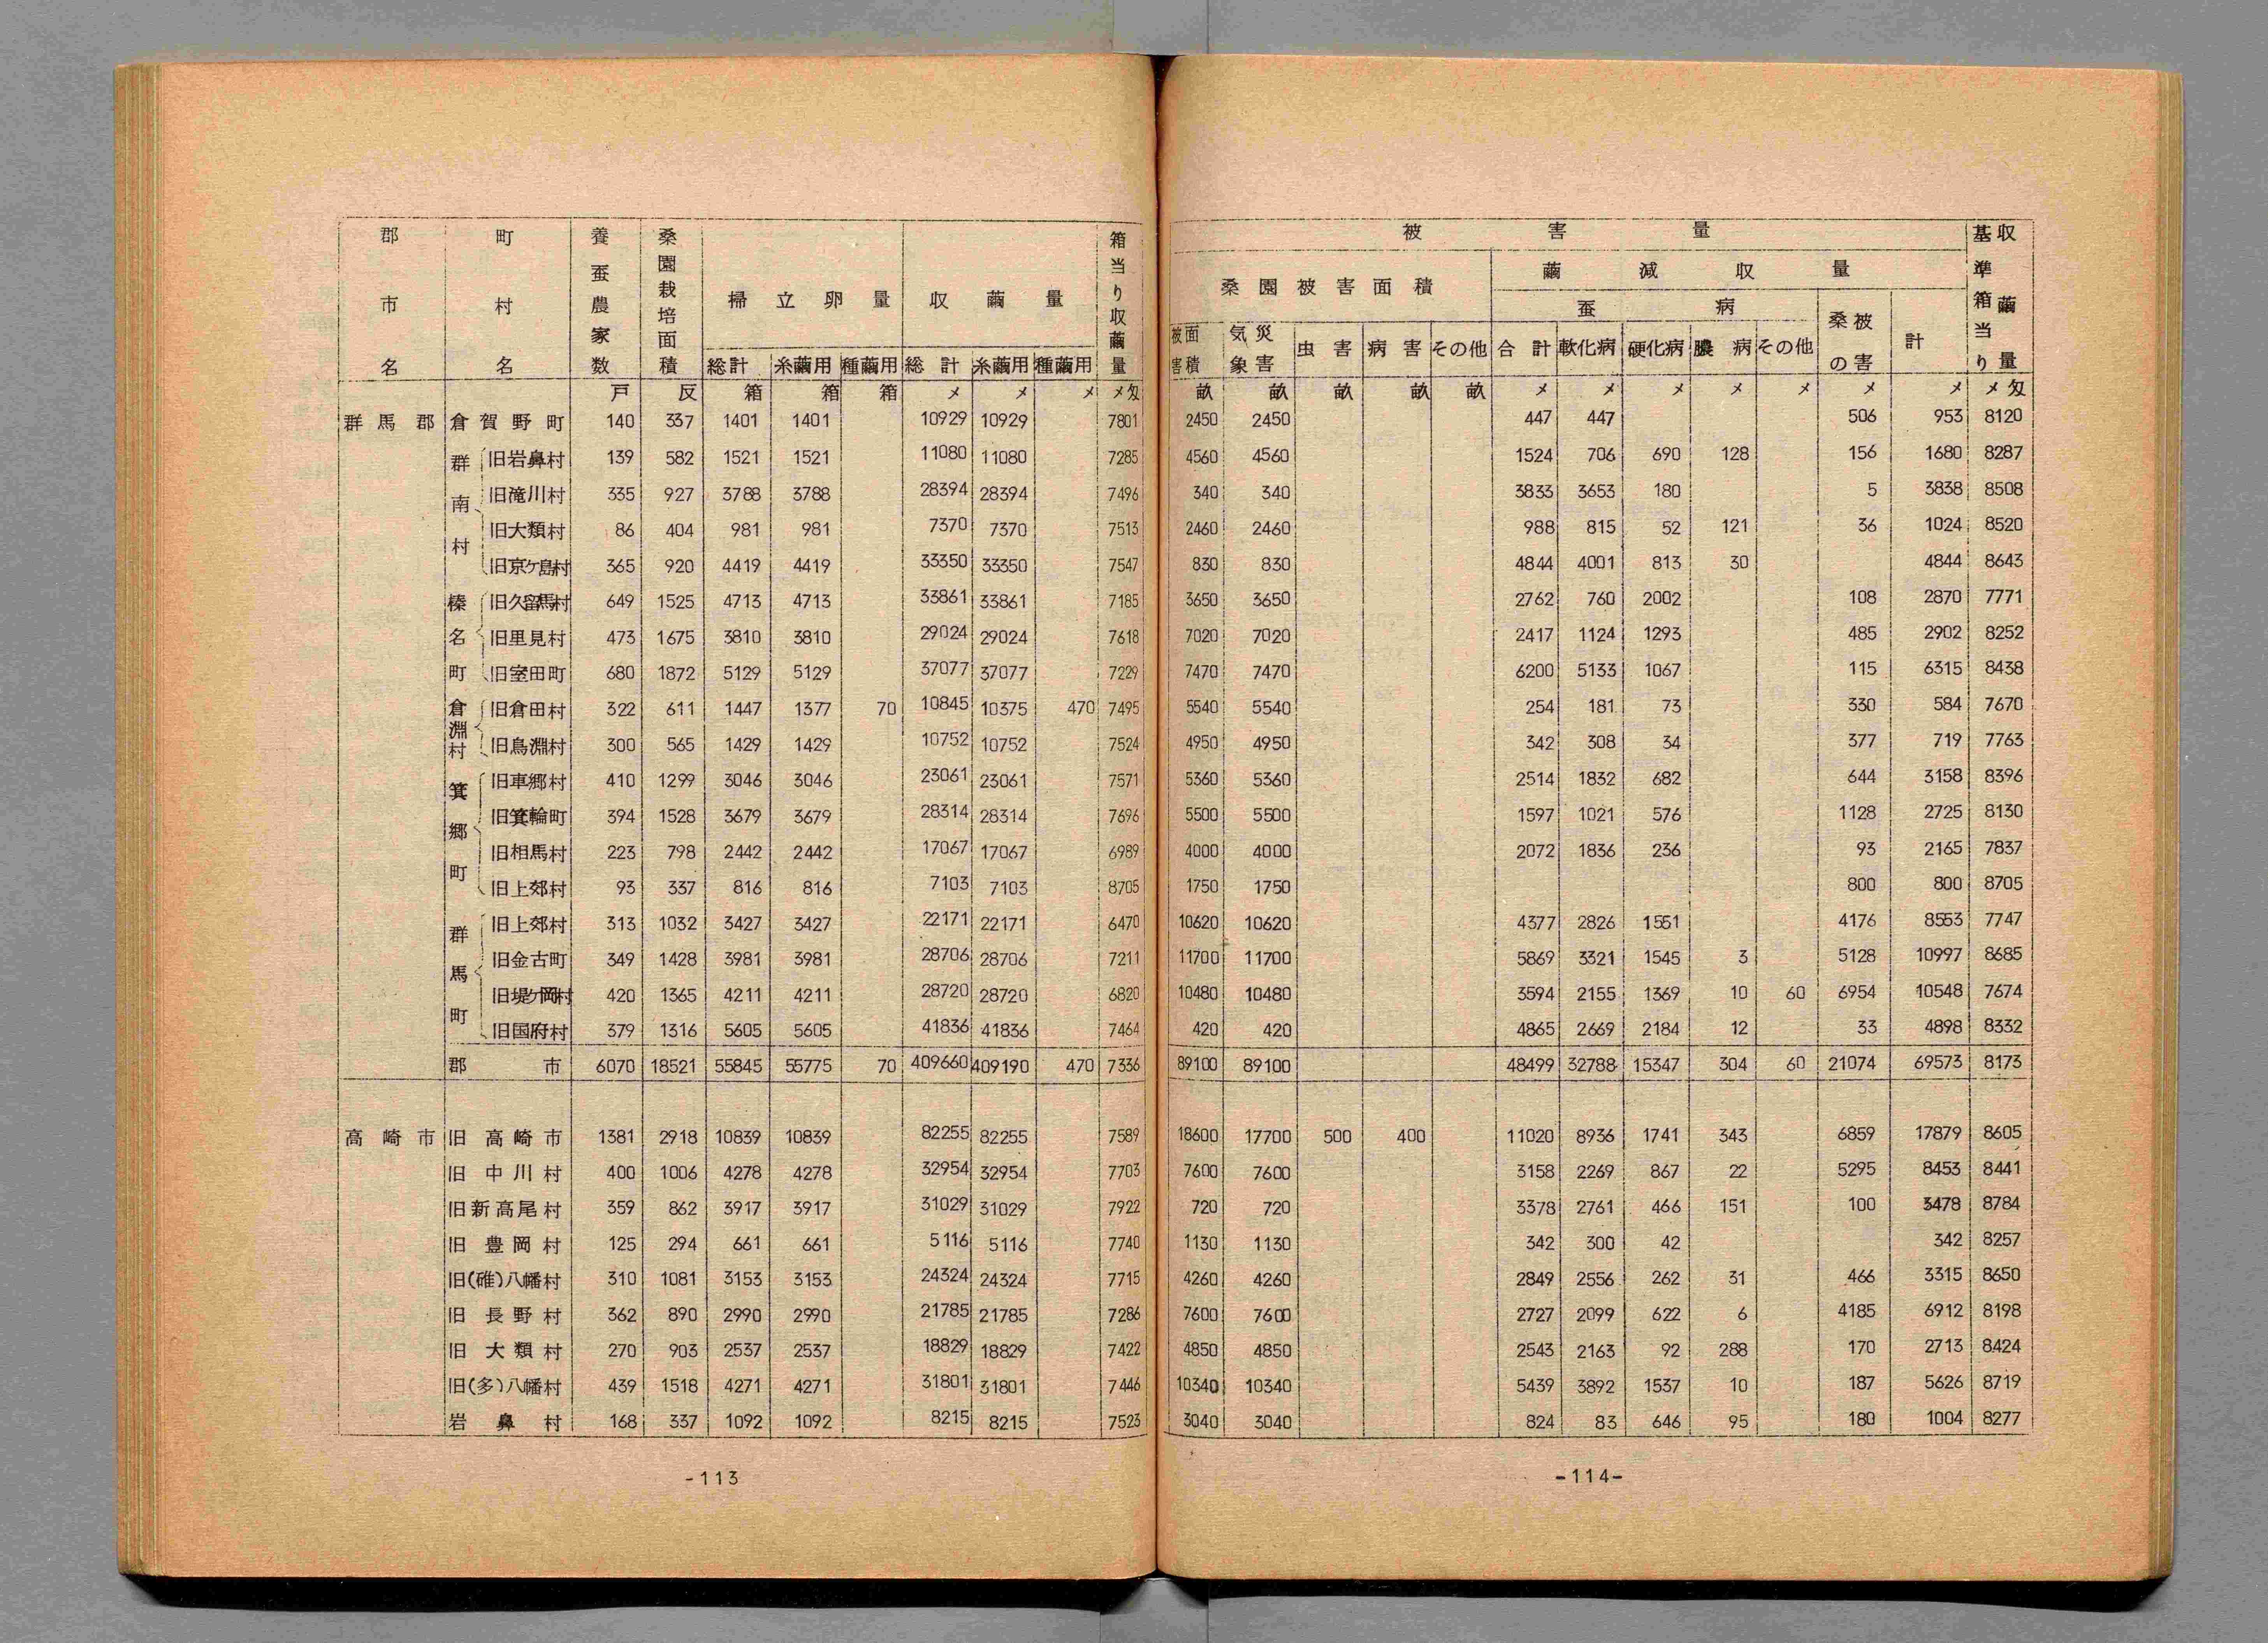 郡市名 町村名 養蚕農家数 桑園栽培面積 掃立卵量 収繭量 箱当り収繭量
総計 糸繭用 種繭用 総計 糸繭用 種繭用
戸 反 箱 箱 箱 メ メ メ メ匁
群馬郡 倉賀野町 140 337 1401 1401 10929 10929 7801
群南村 旧岩鼻村 139 582 1521 1521 11080 11080 7285
旧滝川村 335 927 3788 3788 28394 28394 7496
旧大類村 86 404 981 981 7370 7370 7513
旧京ケ島村 365 920 4419 4419 33350 33350 7547
榛名町 旧久留馬村 649 1525 4713 4713 33861 33861 7185
旧里見村 473 1675 3810 3810 29024 29024 7618
旧室田町 680 1872 5129 5129 37077 37077 7229
倉淵村 旧倉田村 322 611 1447 1377 70 10845 10375 470 7495
旧烏淵村 300 565 1429 1429 10752 10752 7524
箕郷町 旧車郷村 410 1299 3046 3046 23061 23061 7571
旧箕輪町 394 1528 3679 3679 28314 28314 7696
旧相馬村 223 798 2442 2442 17067 17067 6989
旧上郊村 93 337 816 816 7103 7103 8705
群馬町 旧上郊村 313 1032 3427 3427 22171 22171 6470
旧金古町 349 1428 3981 3981 28706 28706 7211
旧堤ケ岡村 420 1365 4211 4211 28720 28720 6820
旧国府村 379 1316 5605 5605 41836 41836 7464
郡市 6070 18521 55845 55775 70 409660 409190 470 7336
高崎市 旧高崎市 1381 2918 10839 10839 82255 82255 7589
旧中川村 400 1006 4278 4278 32954 32954 7703
旧新高尾村 359 862 3917 3917 31029 31029 7922
旧豊岡村 125 294 661 661 5116 5116 7740
旧(碓)八幡村 310 1081 3153 3153 24324 24324 7715
旧長野村 362 890 2990 2990 21785 21785 7286
旧大類村 270 903 2537 2537 18829 18829 7422
旧(多)八幡村 439 1518 4271 4271 31801 31801 7446
岩鼻村 168 337 1092 1092 8215 8215 7523
-113
被害量 基準箱当り収繭量
桑園被害面積 繭減収量
蚕病 桑の被害 計
被害面積 気象災害 虫害 病害 その他 合計 軟化病 硬化病 膿病 その他
畝 畝 畝 畝 畝 メ メ メ メ メ メ メ メ匁
2450 2450 447 447 506 953 8120
4560 4560 1524 706 690 128 156 1680 8287
340 340 3833 3653 180 5 3838 8508
2460 2460 988 815 52 121 36 1024 8520
830 830 4844 4001 813 30 4844 8643
3650 3650 2762 760 2002 108 2870 7771
7020 7020 2417 1124 1293 485 2902 8252
7470 7470 6200 5133 1067 115 6315 8438
5540 5540 254 181 73 330 584 7670
4950 4950 342 308 34 377 719 7763
5360 5360 2514 1832 682 644 3158 8396
5500 5500 1597 1021 576 1128 2725 8130
4000 4000 2072 1836 236 93 2165 7837
1750 1750 800 800 8705
10620 10620 4377 2826 1551 4176 8553 7747
11700 11700 5869 3321 1545 3 5128 10997 8685
10480 10480 3594 2155 1369 10 60 6954 10548 7674
420 420 4865 2669 2184 12 33 4898 8332
89100 89100 48499 32788 15347 304 60 21074 69573 8173
18600 17700 500 400 11020 8936 1741 343 6859 17879 8605
7600 7600 3158 2269 867 22 5295 8453 8441
720 720 3378 2761 466 151 100 3478 8784
1130 1130 342 300 42 342 8257
4260 4260 2849 2556 262 31 466 3315 8650
7600 7600 2727 2099 622 6 4185 6912 8198
4850 4850 2543 2163 92 288 170 2713 8424
10340 10340 5439 3892 1537 10 187 5626 8719
3040 3040 824 83 646 95 180 1004 8277
-114-